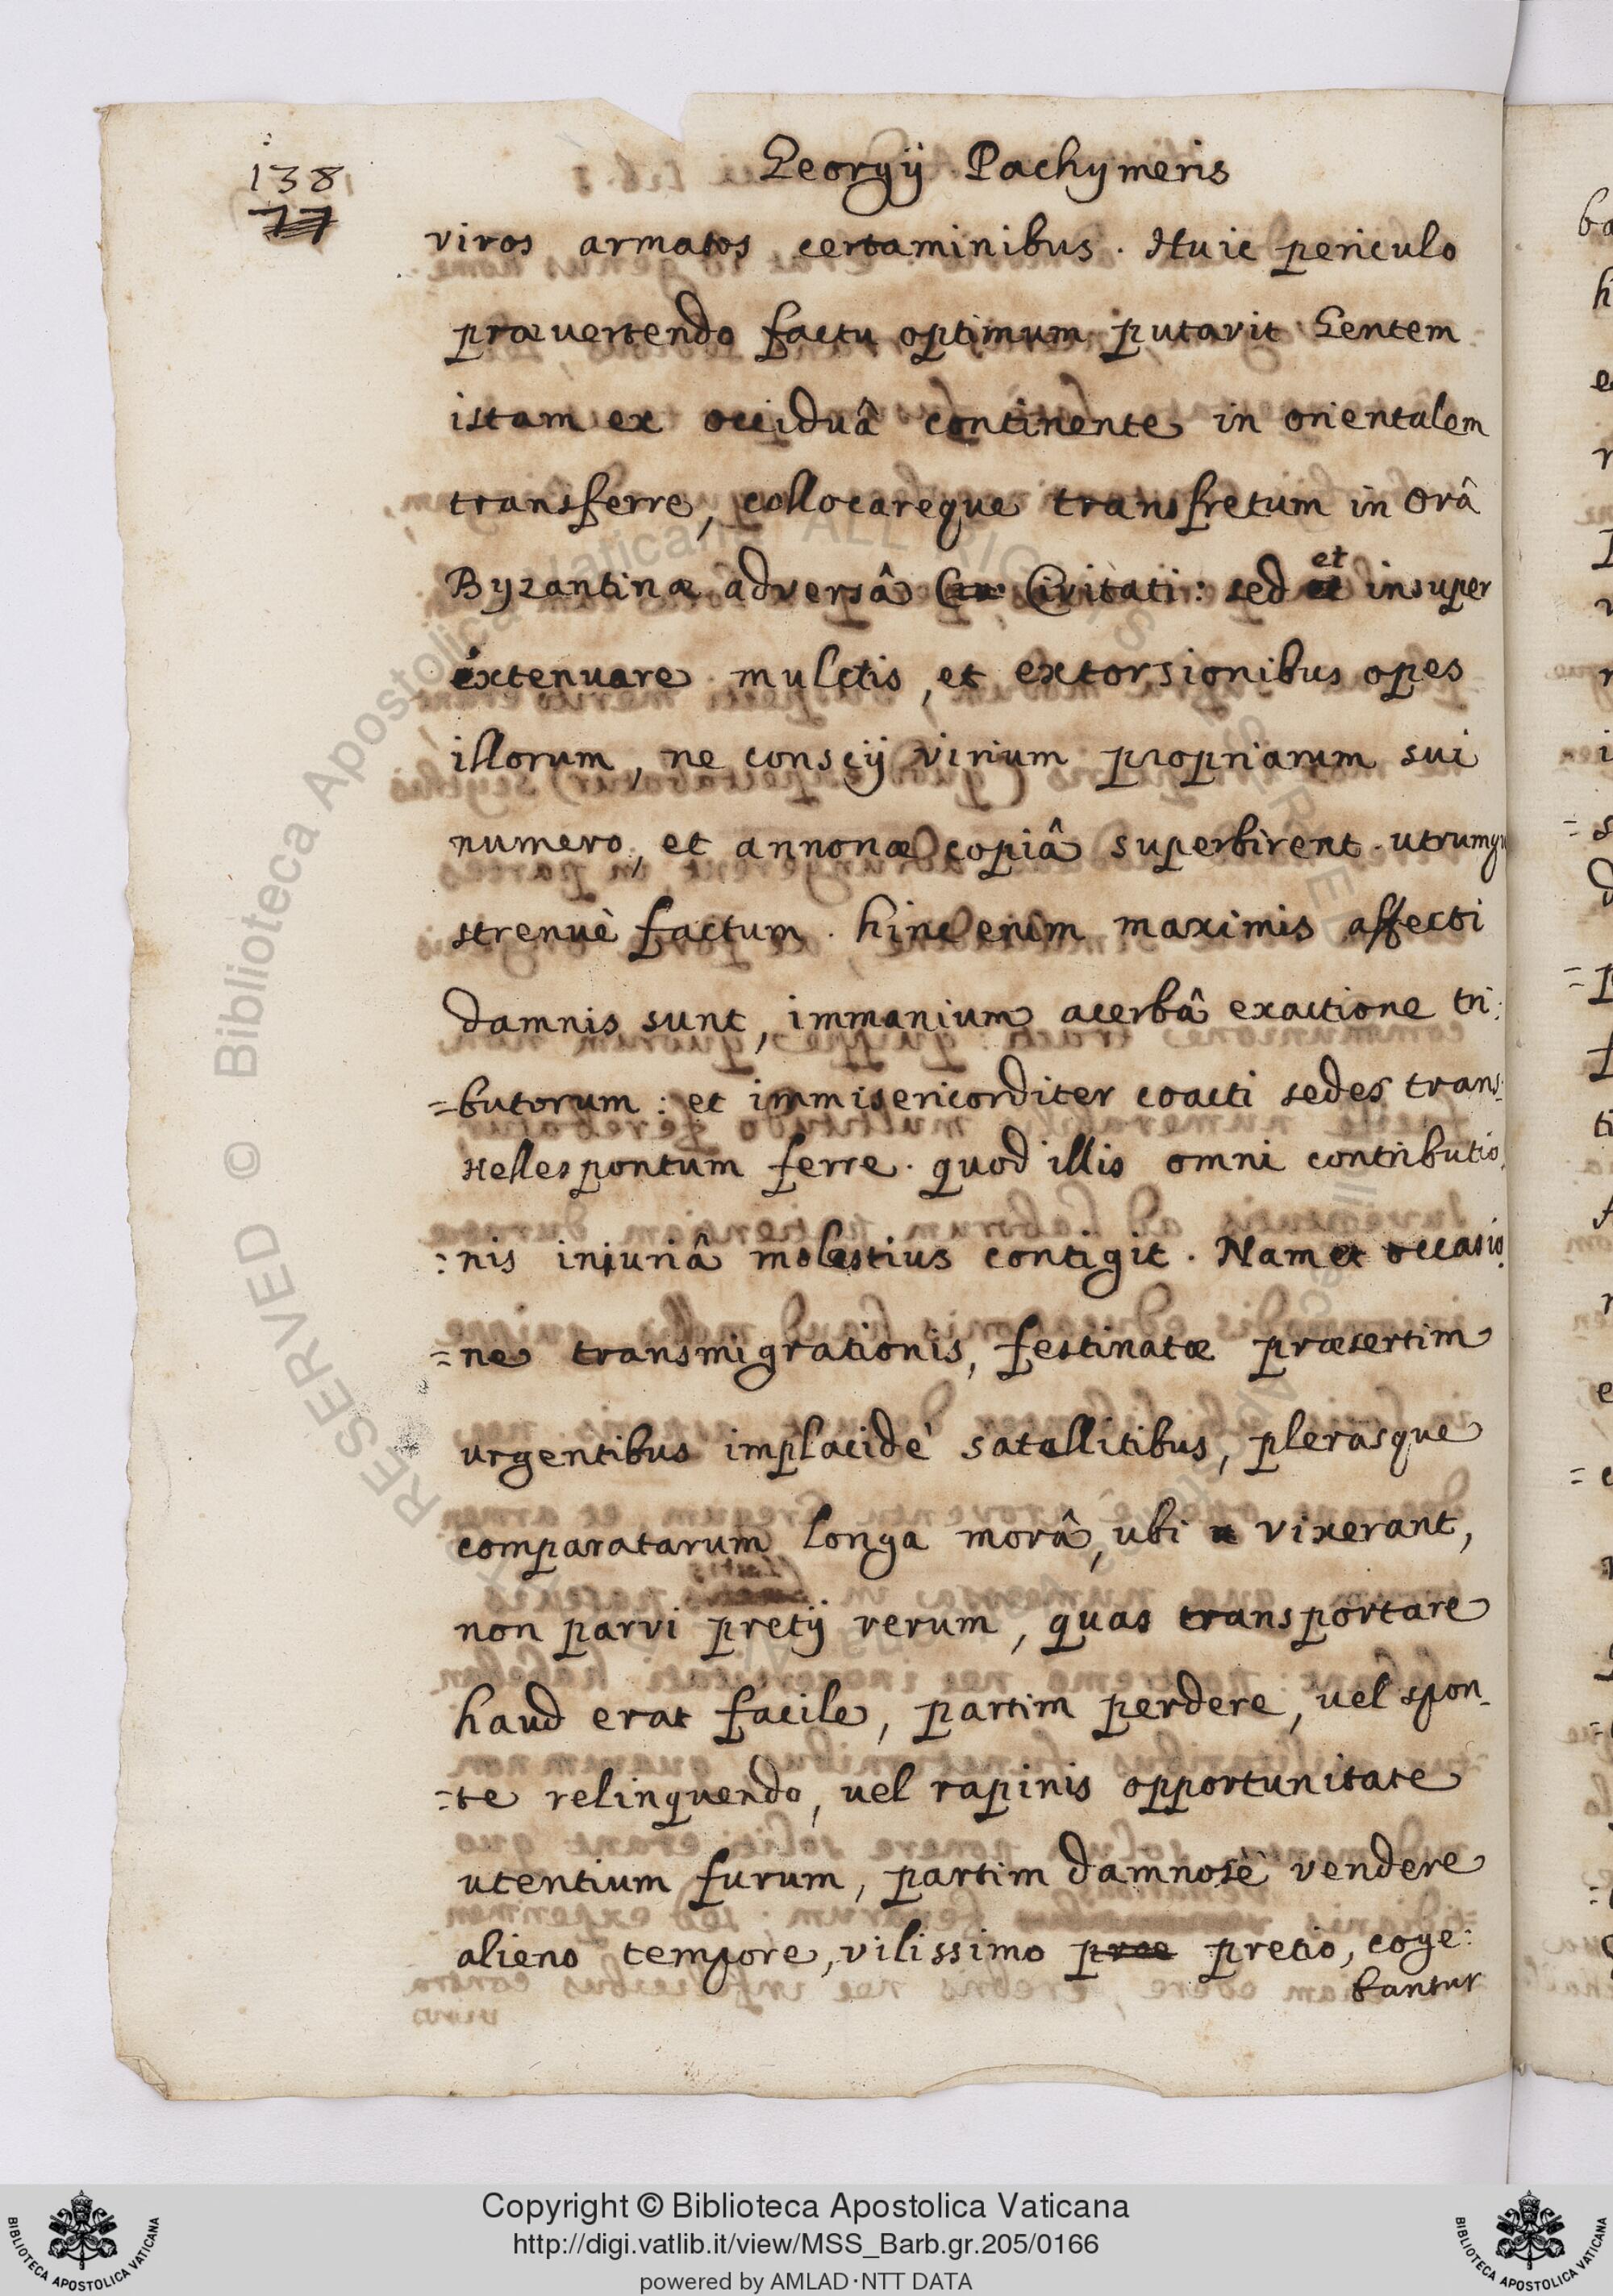 138
77
Georgij Pachymeris
viros armatos certaminibus. Huic periculo
prævertendo factu optimum putavit Gentem
istam ex occiduâ continente in orientalem
transferre, collocareque transfretum in Orâ
Byzantinæ adversâ Civitati: sed et insuper
extenuare mulctis, et extorsionibus opes
illorum, ne conscij virium propriarum sui
numero, et annonæ copiâ superbirent. utrumqu
strenuè factum. hinc enim maximis affecti
damnis sunt, immanium acerbâ exactione tri:
=butorum: et immisericorditer coacti sedes trans:
Hellespontum ferre. quod illis omni contributio:
:nis iniuriâ molestius contigit. Nam et occasio:
=ne transmigrationis, festinatæ præsertim
urgentibus implacidè satellitibus, plerasque
comparatarum longa morâ, ubi vixerant,
non parvi pretij rerum, quas transportare
haud erat facile, partim perdere, vel spon_
=te relinquendo, vel rapinis opportunitate
utentium furum, partim damnosè vendere
alieno tempore, vilissimo præ pretio, coge:
bantur
© Biblioteca Apostolica Vaticana ALL RIGHTS RESERVED
Copyright © Biblioteca Apostolica Vaticana
http://digi.vatlib.it/view/MSS_Barb.gr.205/0166
powered by AMLAD·NTT DATA
BIBLIOTECA APOSTOLICA VATICANA
BIBLIOTECA APOSTOLICA VATICANA